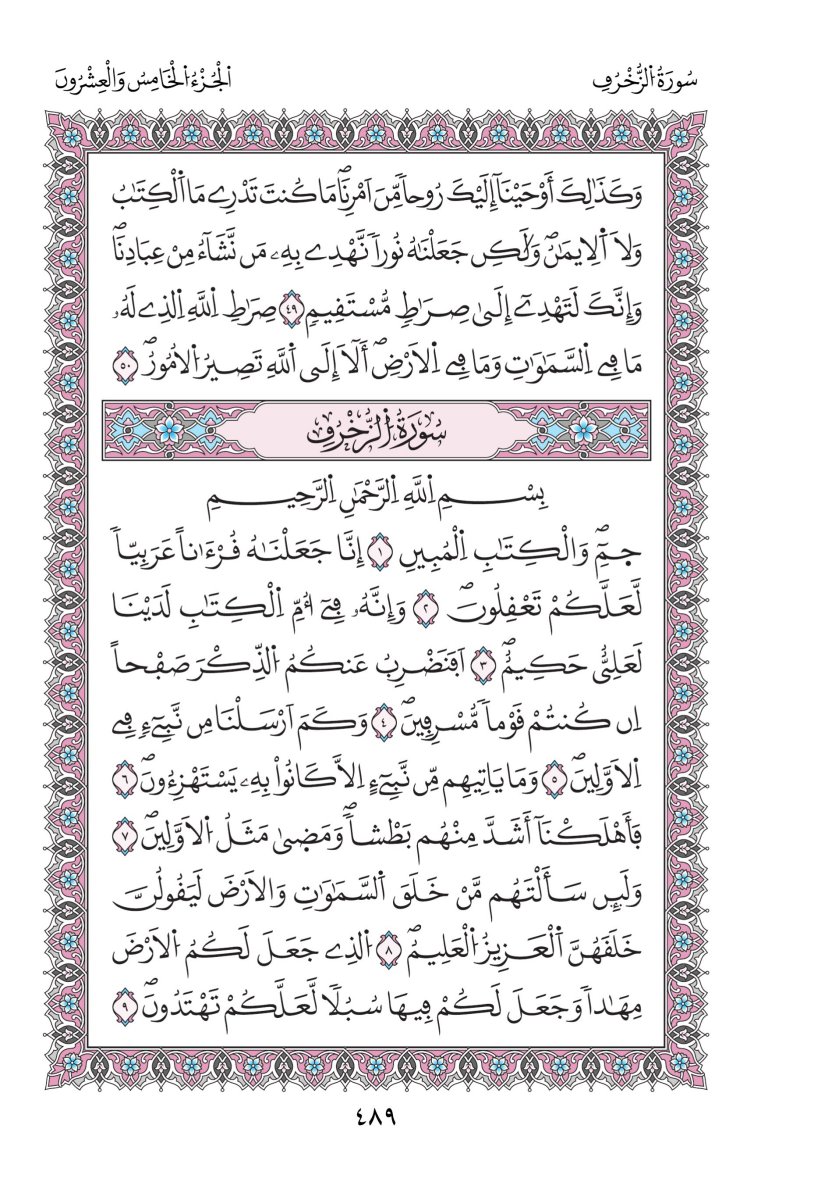 سُورَةُ اُلزُّخْرُفِ
اَلْجُزْءُ اُلْخَامِسُ وَالْعِشْرُونَ
وَكَذَٰلِكَ أَوْحَيْنَآ إِلَيْكَ رُوحاٗ مِّنَ اَمْرِنَاۖ مَا كُنتَ تَدْرِے مَا اَ۬لْكِتَٰبُ
وَلَا اَ۬لِايمَٰنُۖ وَلَٰكِن جَعَلْنَٰهُ نُوراٗ نَّهْدِے بِهِۦ مَن نَّشَآءُ مِنْ عِبَادِنَاۖ
وَإِنَّكَ لَتَهْدِےٓ إِلَىٰ صِرَٰطٖ مُّسْتَفِيمٖ ٤٩ صِرَٰطِ اِ۬للَّهِ اِ۬لذِے لَهُۥ
مَا فِے اِ۬لسَّمَٰوَٰتِ وَمَا فِے اِ۬لَارْضِۖ أَلَآ إِلَى اَ۬للَّهِ تَصِيرُ اُ۬لُامُورُۖ ٥٠
سُورَةُ اُلزُّخْرُفِ
بِسْمِ اِ۬للَّهِ اِ۬لرَّحْمَٰنِ اِ۬لرَّحِيمِ
حمِٓۖ وَالْكِتَٰبِ اِ۬لْمُبِينِ ١ إِنَّا جَعَلْنَٰهُ فُرْءَٰناً عَرَبِيّاٗ
لَّعَلَّكُمْ تَعْفِلُونَۖ ٢ وَإِنَّهُۥ فِےٓ أُمِّ اِ۬لْكِتَٰبِ لَدَيْنَا
لَعَلِيٌّ حَكِيمٌۖ ٣ اَفَنَضْرِبُ عَنكُمُ اُ۬لذِّكْرَ صَفْحاً
اِن كُنتُمْ فَوْماٗ مُّسْرِفِينَۖ ٤ وَكَمَ اَرْسَلْنَا مِن نَّبِےٓءٖ فِے
اِ۬لَاوَّلِينَۖ ٥ وَمَا يَاتِيهِم مِّن نَّبِےٓءٍ اِلَّا كَانُواْ بِهِۦ يَسْتَهْزِءُونَۖ ٦
فَأَهْلَكْنَآ أَشَدَّ مِنْهُم بَطْشاٗۖ وَمَضىٰ مَثَلُ اُ۬لَاوَّلِينَۖ ٧
وَلَئِن سَأَلْتَهُم مَّنْ خَلَقَ اَ۬لسَّمَٰوَٰتِ وَالَارْضَ لَيَفُولُنَّ
خَلَفَهُنَّ اَ۬لْعَزِيزُ اُ۬لْعَلِيمُۖ ٨ اُ۬لذِے جَعَلَ لَكُمُ اُ۬لَارْضَ
مِهَٰداٗ وَجَعَلَ لَكُمْ فِيهَا سُبُلاٗ لَّعَلَّكُمْ تَهْتَدُونَۖ ٩
٤٨٩